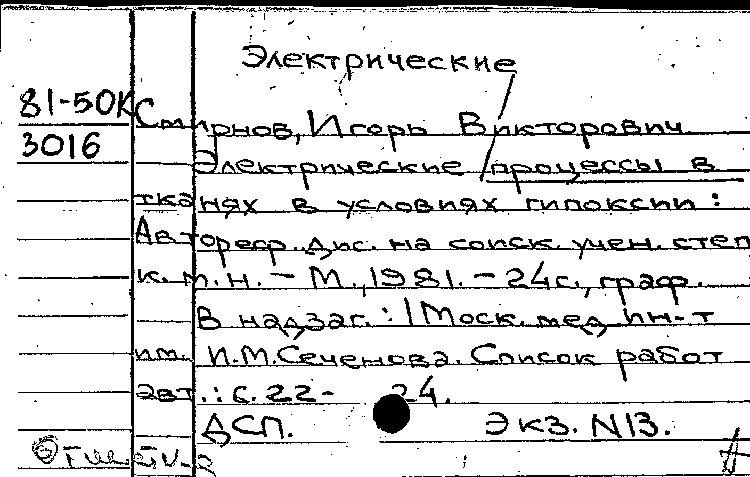 Электрические
81-50К
3016
Смирнов, Игорь Викторович
Электрические процессы в
тканях в условиях гипоксии:
Автореф. дис. на соиск. учен. степ
к. м. н. - М., 1981. - 24 с., граф.
В надзаг.: 1 Моск. мед. ин-т
им. И.М. Сеченова. Список работ
авт.: с. 22-24.
ДСП. Экз. N13.